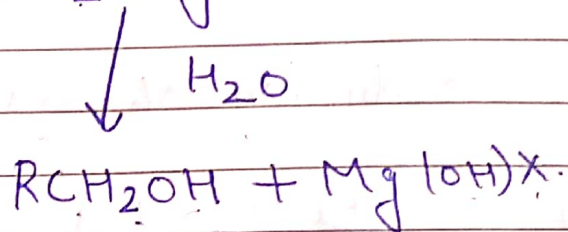 H₂O
RCH₂OH + Mg(OH)X.